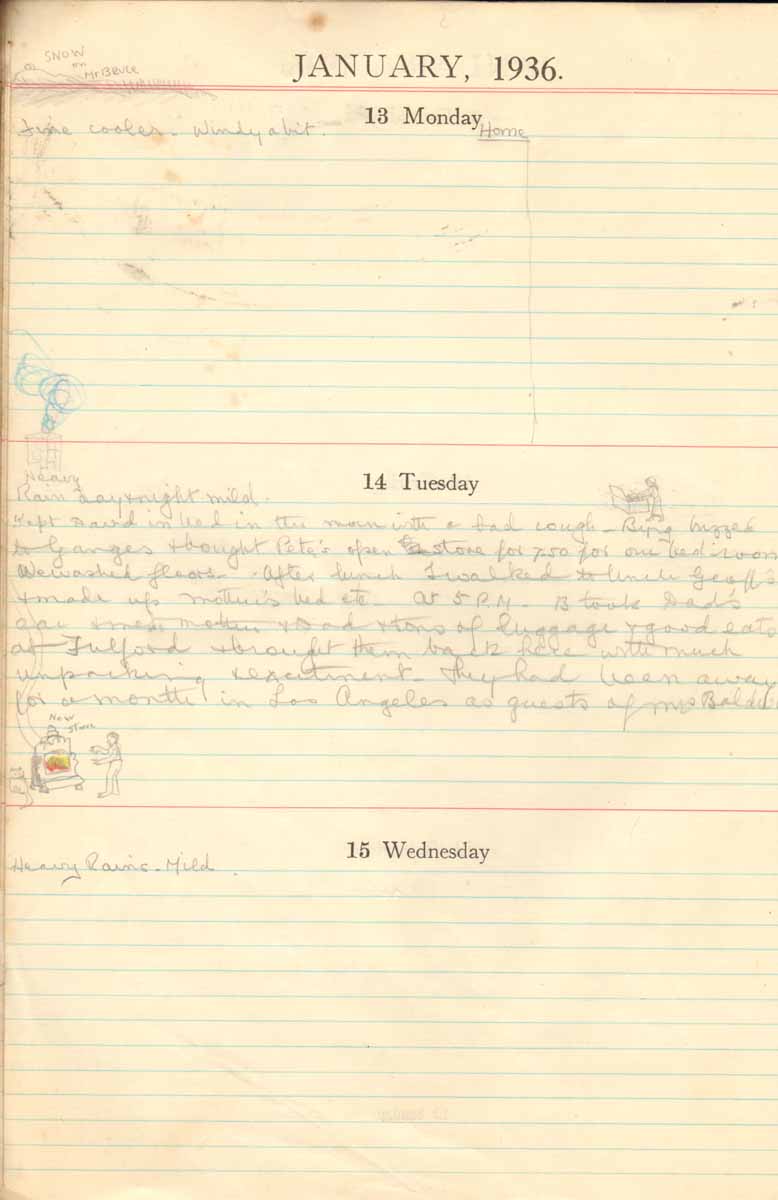 SNOW
on
Mt BRUCE
JANUARY, 1936.
13 Monday
Home
Fine cooler - Windy a bit.
14 Tuesday
Heavy
Rain day & night mild.
Kept David in bed in the morn with a bad cough - buzzed
to Ganges & bought Pete's open stove for 7.50 for our bed-room
We washed floors - After lunch I walked to Uncle Geoff's
& made up mother's bed etc - At 5 P.M. - B took Dad's
car & met mother & Dad & tons of luggage & good eats
at Fulford & brought them back here with much
unpacking & excitement - They had been away
for a month in Los Angeles as guests of Mrs
New
Stove
15 Wednesday
Heavy Rains - Mild.